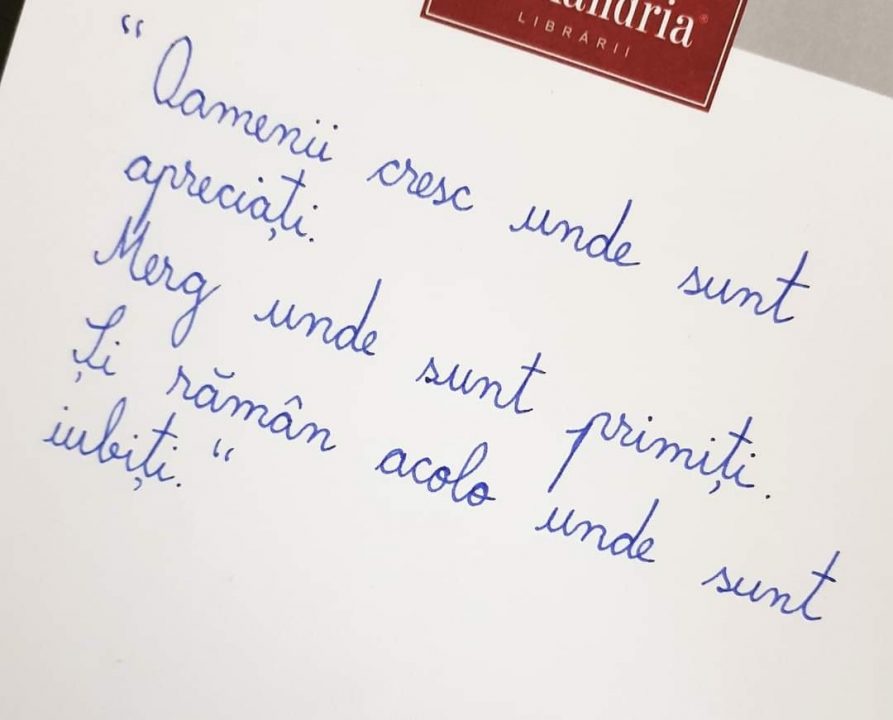 andria
LIBRĂRII
“Oamenii cresc unde sunt
apreciați.
Merg unde sunt primiți.
Și rămân acolo unde sunt
iubiți.“